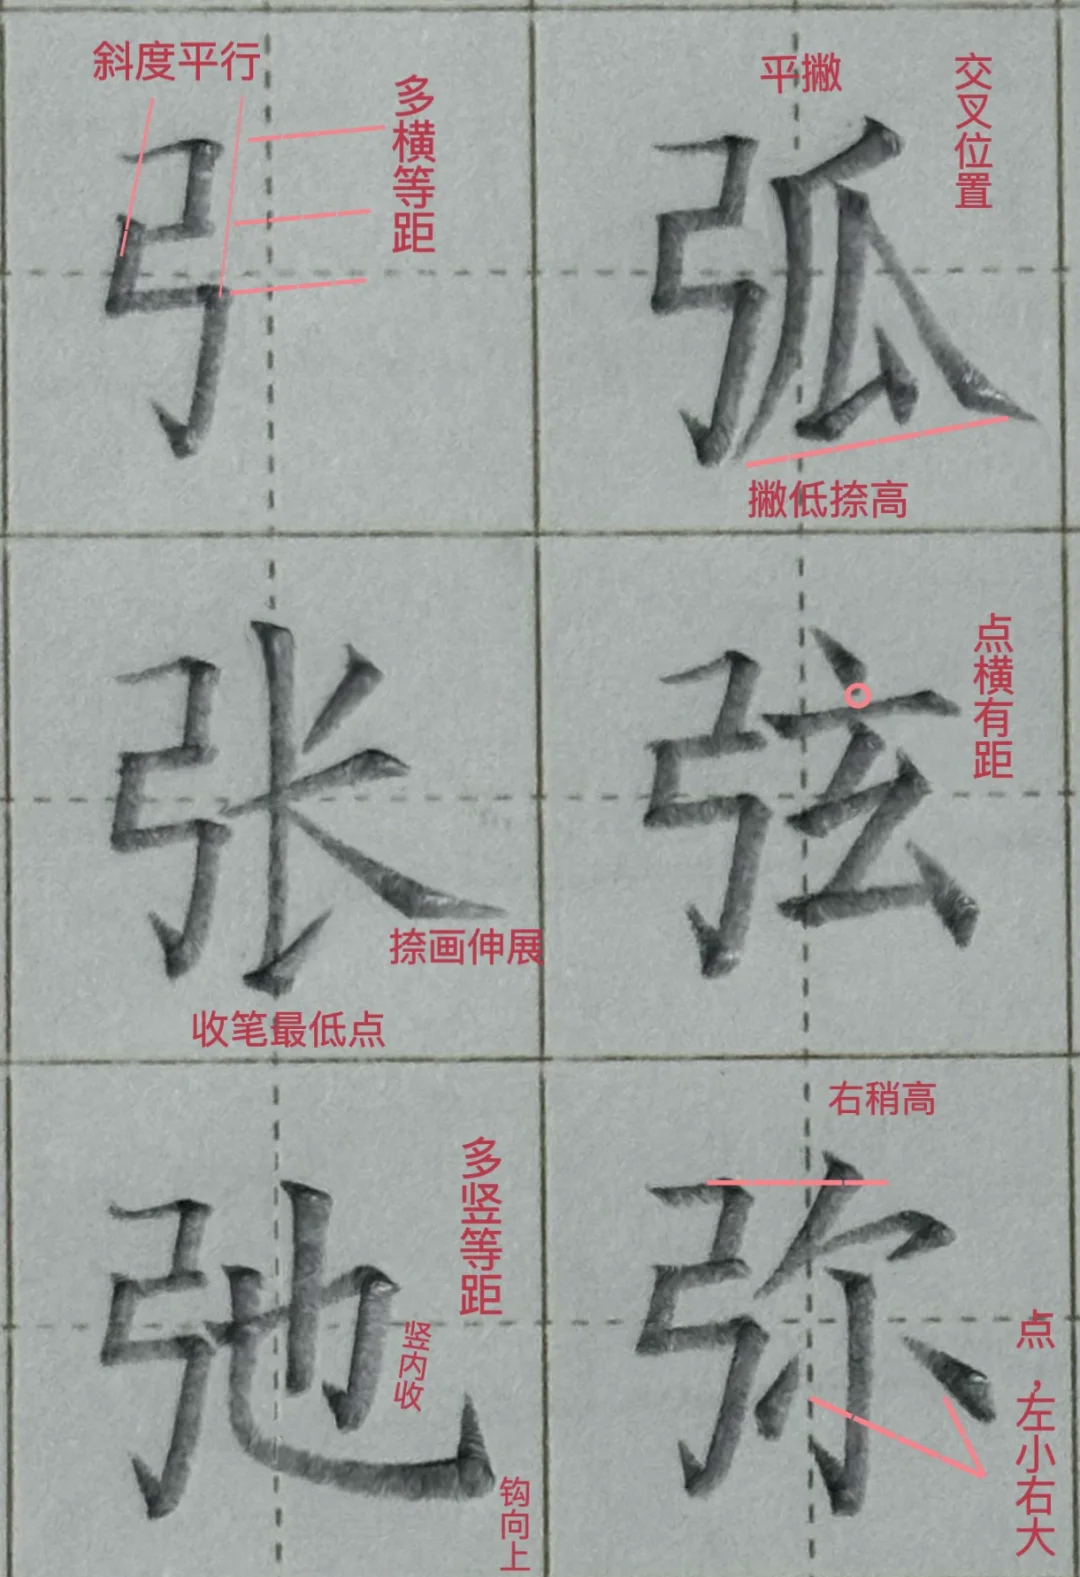 斜度平行
多横等距
弓
平撇
交叉位置
弧
撇低捺高
张
捺画伸展
收笔最低点
点横有距
弦
多竖等距
弛
竖内收
钩向上
右稍高
弥
点，左小右大